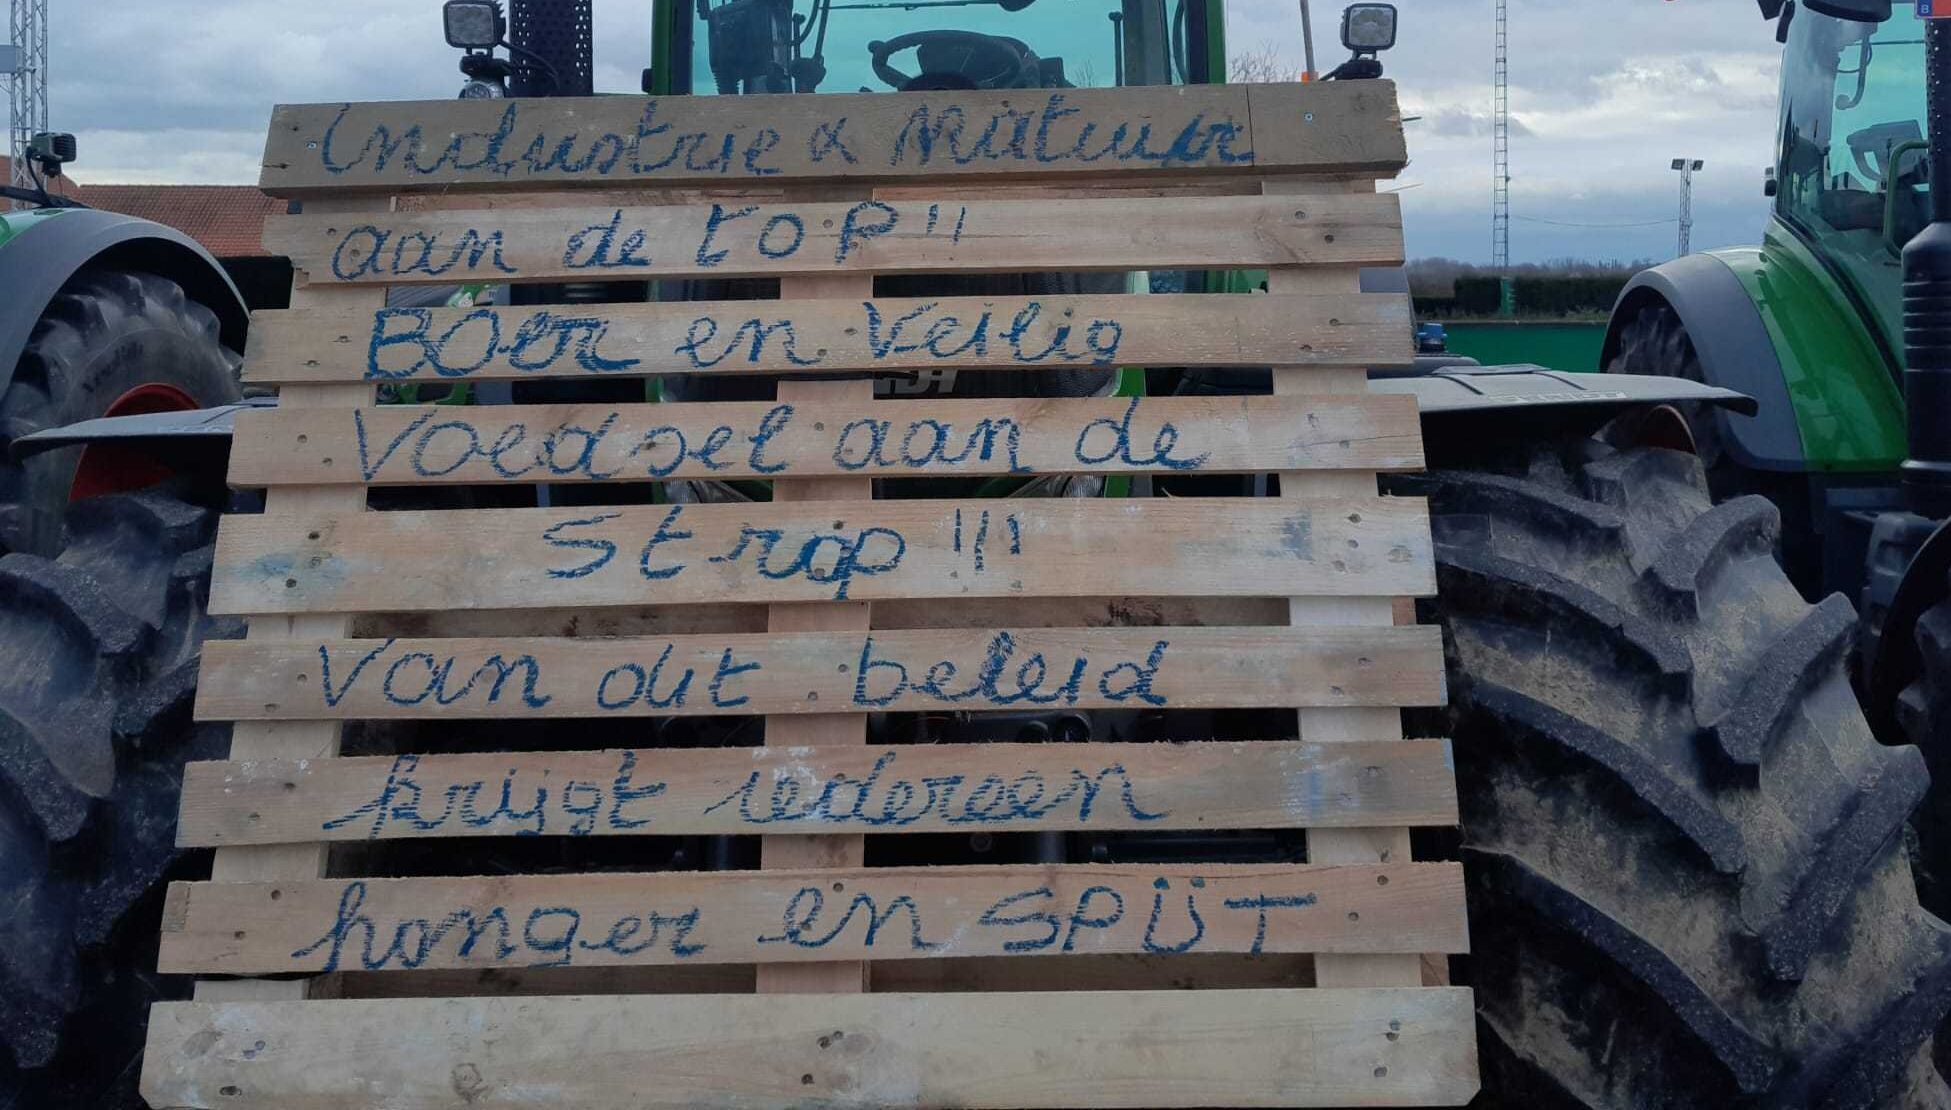 Industrie & Natuur
aan de top!!
Boer en Veilig
Voedsel aan de
strop!!!
Van dit beleid
krijgt iedereen
honger en SPÜT